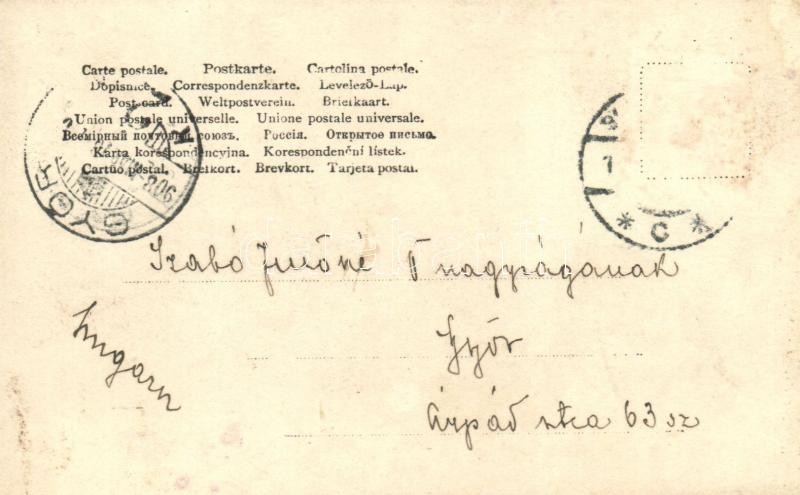 Carte postale. Postkarte. Cartolina postale.
Dopisnice. Correspondenzkarte. Levelező-Lap.
Post-card. Weltpostverein. Briefkaart.
Union postale universelle. Unione postale universale.
Всемірный почтовый союзъ. Россія. Открытое письмо.
Karta korespondencyjna. Korespondenční lístek.
Cartuo postal. Brefkort. Brevkort. Tarjeta postal.
GYŐR
* C *
Szabó Jenőné nagyságának
Győr
Árpád utca 63 sz
Hungary